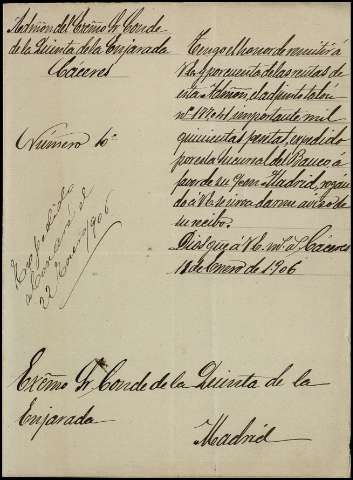 Admón del Excmo Sr Conde
de la Quinta de la Enjarada
Cáceres
Número 10
Tengo el honor de remitir á
V.E. por cuenta de las rentas de
esta Admón, el adjunto talón
importante mil
quinientas pesetas, expedido
por esta Sucursal del Banco á
favor de su Madrid, rogán
do á V.E. se sirva darme aviso de
su recibo.
Dios gue á V.E. m. a. Cáceres
18 de Enero de 1906
Contesté el
22 Enero 1906
Excmo Sr Conde de la Quinta de la
Enjarada
Madrid